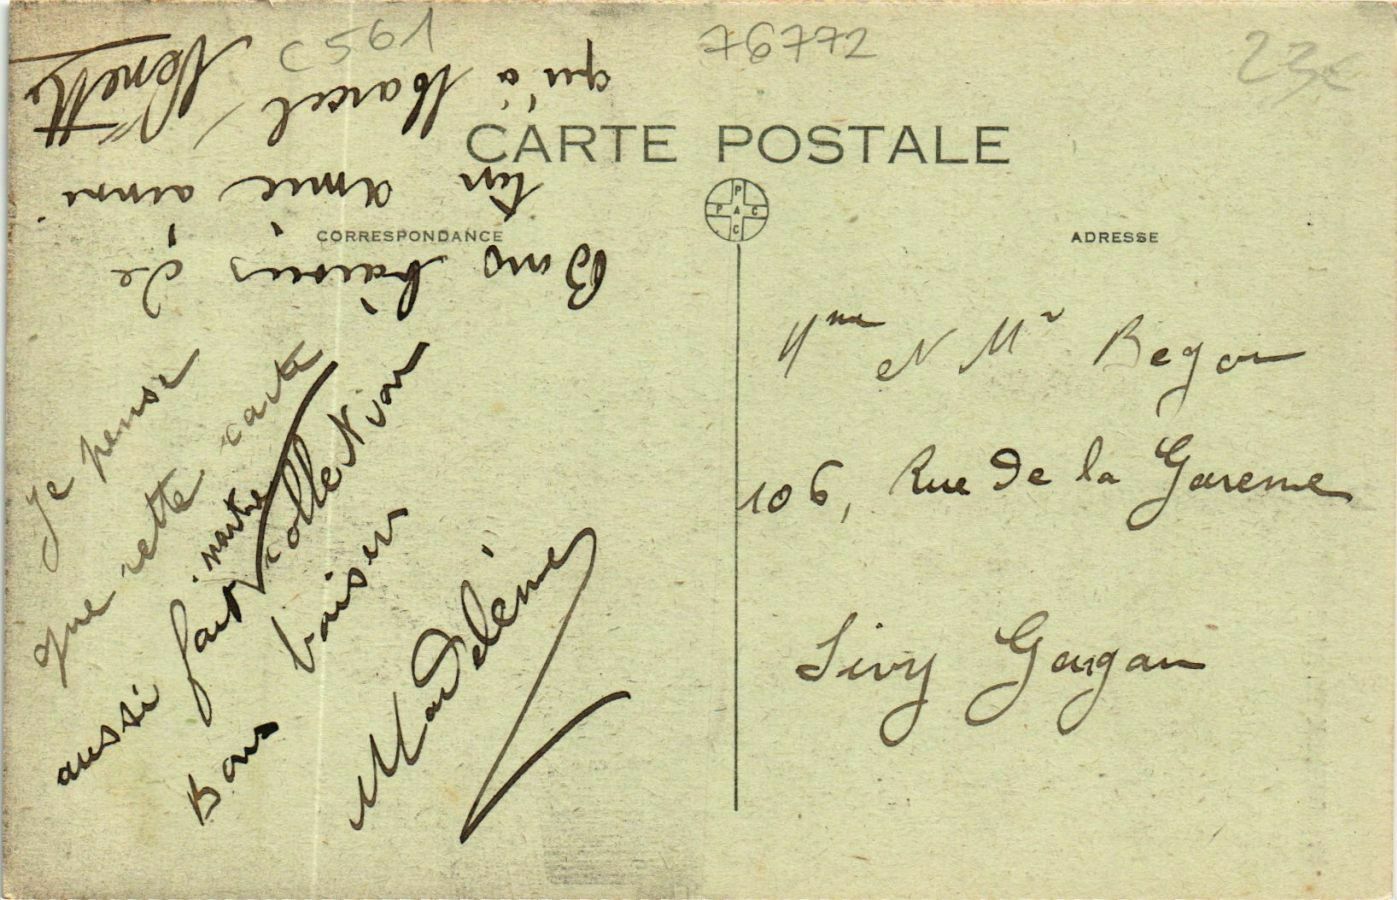 C561
76772
23€
CARTE POSTALE
P
P A C
C
CORRESPONDANCE
ADRESSE
Bons baisers de
ton amie ainsi
qu'à Marcel
Nenette
Je pense
que cette carte
aussi fait
notre
collection
Bons baiser
Madeleine
Mme et Mr Begon
106, Rue de la Garenne
Livry Gargan